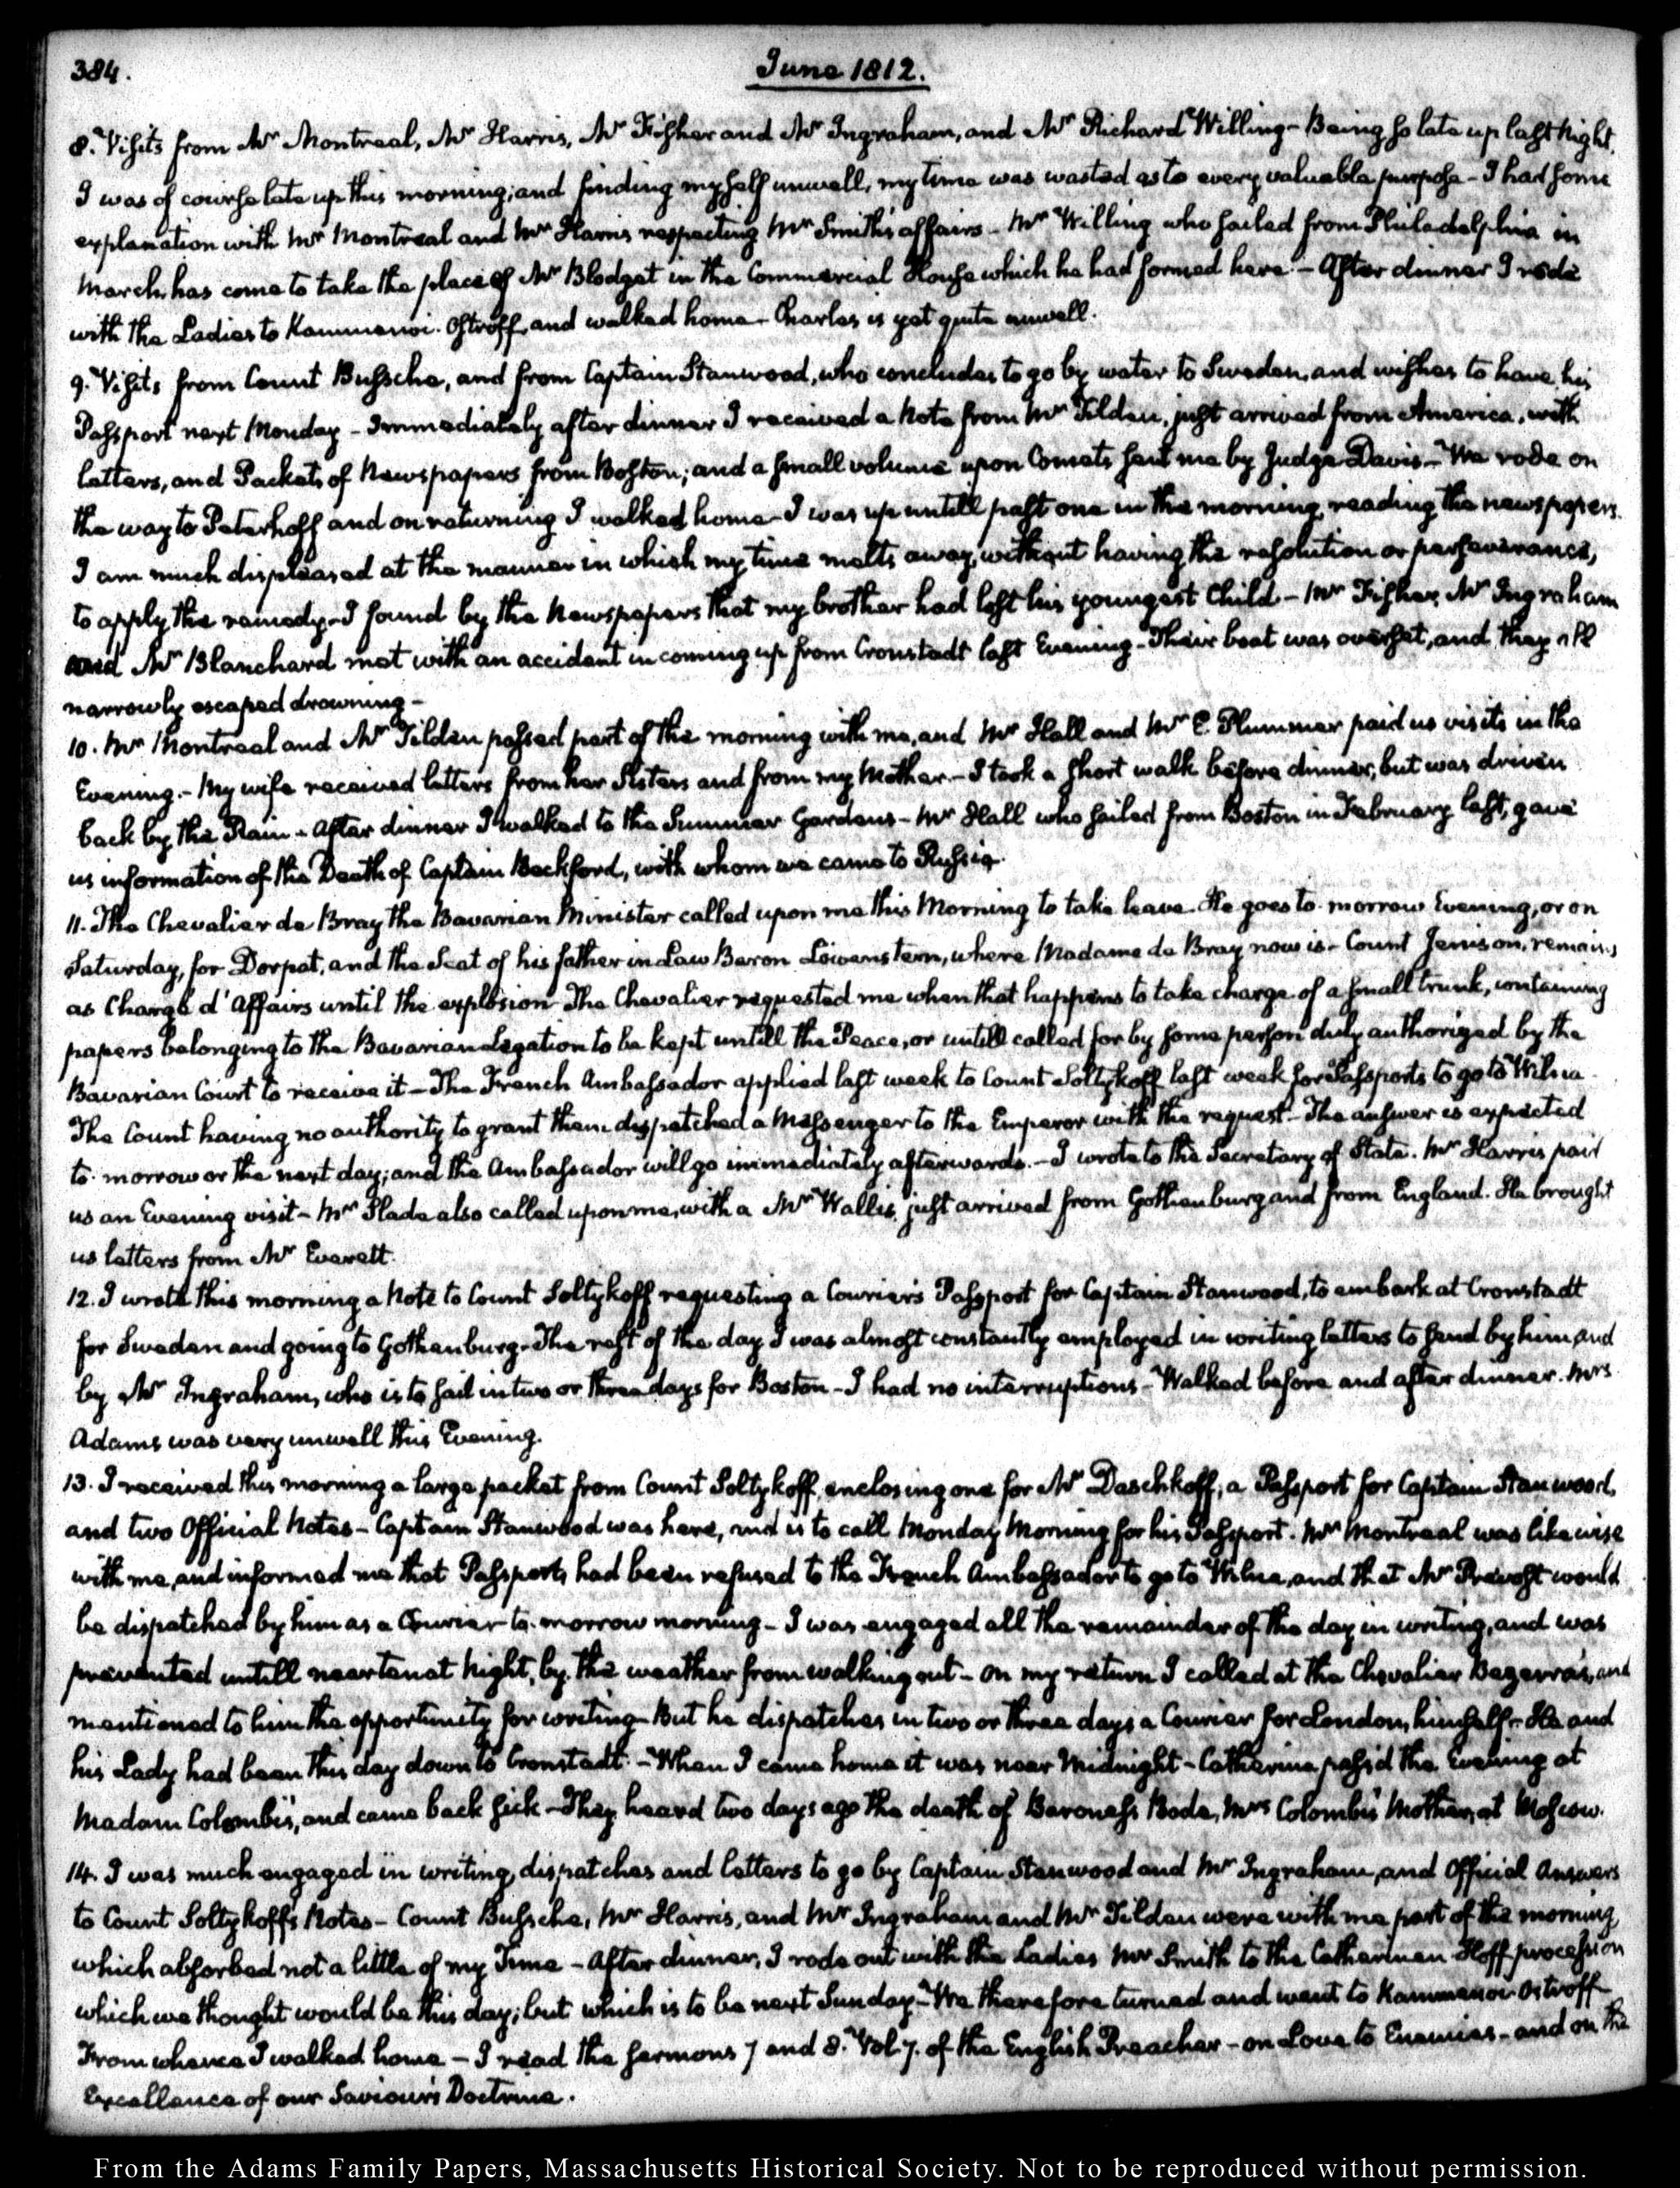 384.
June 1812.
8. Visits from Mr Montreal, Mr Harris, Mr Fisher and Mr Ingraham, and Mr Richard Willing – Being so late up last night,
I was of course late up this morning; and finding myself unwell, my time was wasted as to every valuable purpose – I had some
explanation with Mr Montreal and Mr Harris respecting Mr Smith's affairs – Mr Willing who sailed from Philadelphia in
March, has come to take the place of Mr Blodget in the Commercial House which he had formed here. – After dinner I rode
with the Ladies to Kammenoi-Ostroff, and walked home – Charles is yet quite unwell.
9. Visits from Count Bussche, and from Captain Stanwood, who concludes to go by water to Sweden, and wishes to have his
Passport next Monday – Immediately after dinner I received a Note from Mr Tilden, just arrived from America, with
letters, and Packets of Newspapers from Boston; and a small volume upon Comets sent me by Judge Davis – We rode on
the way to Peterhoff and on returning I walked home – I was up untill past one in the morning, reading the newspapers.
I am much displeased at the manner in which my time melts away, without having the resolution or perseverance,
to apply the remedy – I found by the Newspapers that my brother had lost his youngest Child – Mr Fisher, Mr Ingraham
and Mr Blanchard met with an accident in coming up from Cronstadt last Evening – Their boat was overset, and they all
narrowly escaped drowning –
10. Mr Montreal and Mr Tilden passed part of the morning with me, and Mr Hall and Mr E. Plummer paid us visits in the
Evening. – My wife received letters from her Sisters and from my Mother. – I took a short walk before dinner, but was driven
back by the Rain – After dinner I walked to the Summer Gardens – Mr Hall who sailed from Boston in February last, gave
us information of the Death of Captain Beckford, with whom we came to Russia.
11. The Chevalier de Bray the Bavarian Minister called upon me this Morning to take leave. He goes to-morrow Evening, or on
Saturday, for Dorpat, and the Seat of his father in Law Baron Löwenstern, where Madame de Bray now is – Count Jenison, remains
as Chargé d'Affairs until the explosion – The Chevalier requested me when that happens to take charge of a small trunk, containing
papers belonging to the Bavarian Legation to be kept untill the Peace, or untill called for by some person duly authorized by the
Bavarian Court to receive it – The French Ambassador applied last week to Count Soltykoff last week for Passports to go to Wilna
The Count having no authority to grant them dispatched a Messenger to the Emperor with the request – The answer is expected
to-morrow or the next day; and the Ambassador will go immediately afterwards. – I wrote to the Secretary of State. Mr Harris paid
us an Evening visit – Mr Slade also called upon me, with a Mr Wallis, just arrived from Gothenburg and from England. He brought
us letters from Mr Everett.
12. I wrote this morning a Note to Count Soltykoff requesting a Courier's Passport for Captain Stanwood, to embark at Cronstadt
for Sweden and going to Gothenburg – The rest of the day I was almost constantly employed in writing letters to send by him, and
by Mr Ingraham, who is to sail in two or three days for Boston – I had no interruptions – Walked before and after dinner. Mrs
Adams was very unwell this Evening.
13. I received this morning a large packet from Count Soltykoff, enclosing one for Mr Daschkoff, a Passport for Captain Stanwood,
and two Official Notes – Captain Stanwood was here, and is to call Monday Morning for his Passport. Mr Montreal was likewise
with me, and informed me that Passports had been refused to the French Ambassador to go to Wilna, and that Mr Prevost would
be dispatched by him as a Courier to-morrow morning – I was engaged all the remainder of the day in writing, and was
prevented untill near ten at Night, by the weather from walking out – On my return I called at the Chevalier Bezerra's, and
mentioned to him the opportunity for writing – But he dispatches in two or three days a Courier for London, himself – He and
his Lady had been this day down to Cronstadt. – When I came home it was near Midnight – Catherine pass'd the Evening at
Madam Colombi's, and came back sick – They heard two days ago the death of Baroness Bode, Mrs Colombi's Mother, at Moscow.
14. I was much engaged in writing, dispatches and letters to go by Captain Stanwood and Mr Ingraham, and Official Answers
to Count Soltykoff's Notes – Count Bussche, Mr Harris, and Mr Ingraham and Mr Tilden were with me part of the morning,
which absorbed not a little of my Time – After dinner, I rode out with the Ladies Mr Smith to the Catherinen Hoff procession
which we thought would be this day; but which is to be next Sunday – We therefore turned and went to Kammenoi-Ostroff
From whence I walked home – I read the sermons 7 and 8. Vol. 7. of the English Preacher – on Love to Enemies – and on the
Excellence of our Saviour's Doctrine.
From the Adams Family Papers, Massachusetts Historical Society. Not to be reproduced without permission.